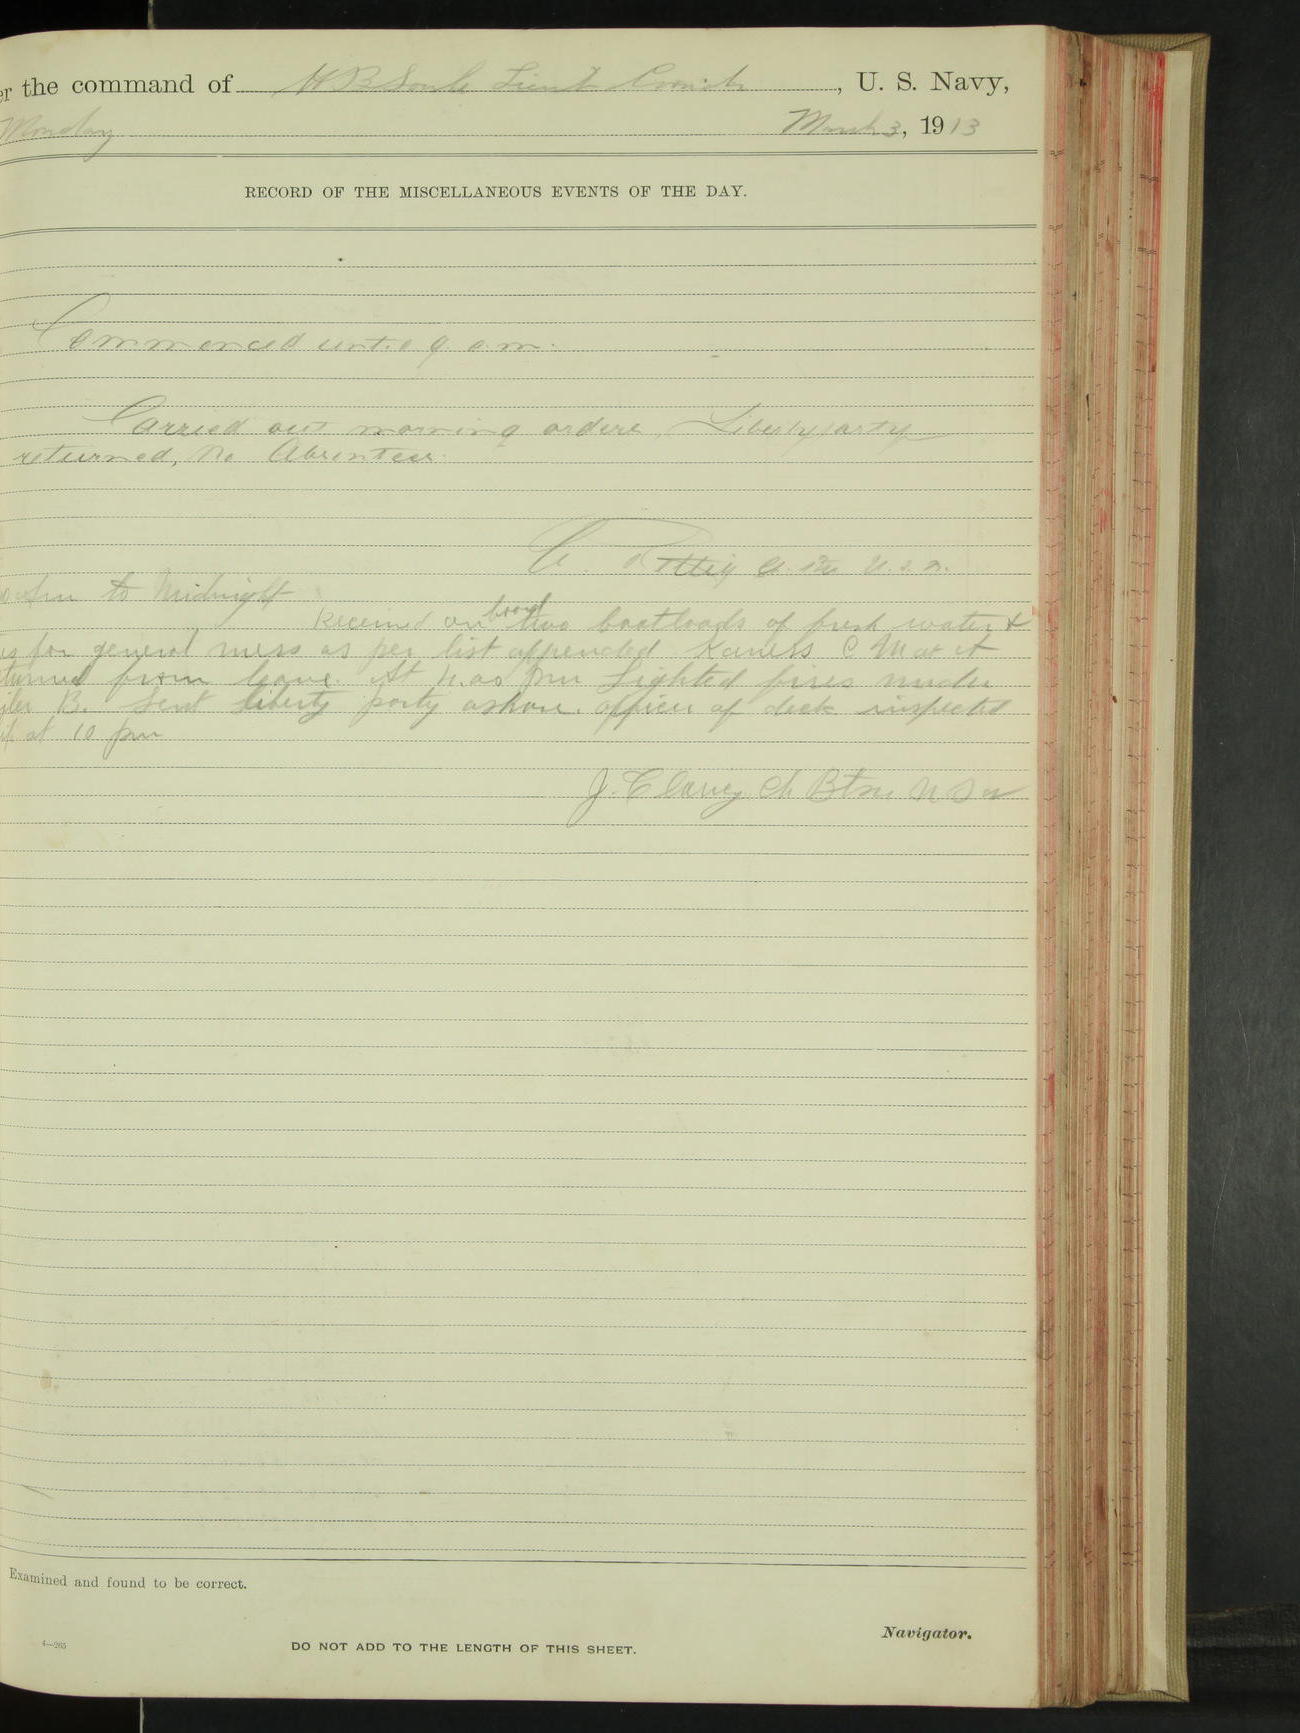 er the command of H B Soule Lieut Comdr, U. S. Navy,
Monday March 3, 1913
RECORD OF THE MISCELLANEOUS EVENTS OF THE DAY.
Commenced until 9 a.m.
Carried out morning orders, Liberty party
returned, No Absentees.
C. U.S.N.
to Midnight
Received on board two boatloads of fresh water &
for general mess as per list appended C M at
from leave. At Lighted fires under
B. Sent liberty party ashore. officer of deck inspected
at 10 pm
J. Clancy Ch Btsn U S N
Examined and found to be correct.
Navigator.
4—265
DO NOT ADD TO THE LENGTH OF THIS SHEET.